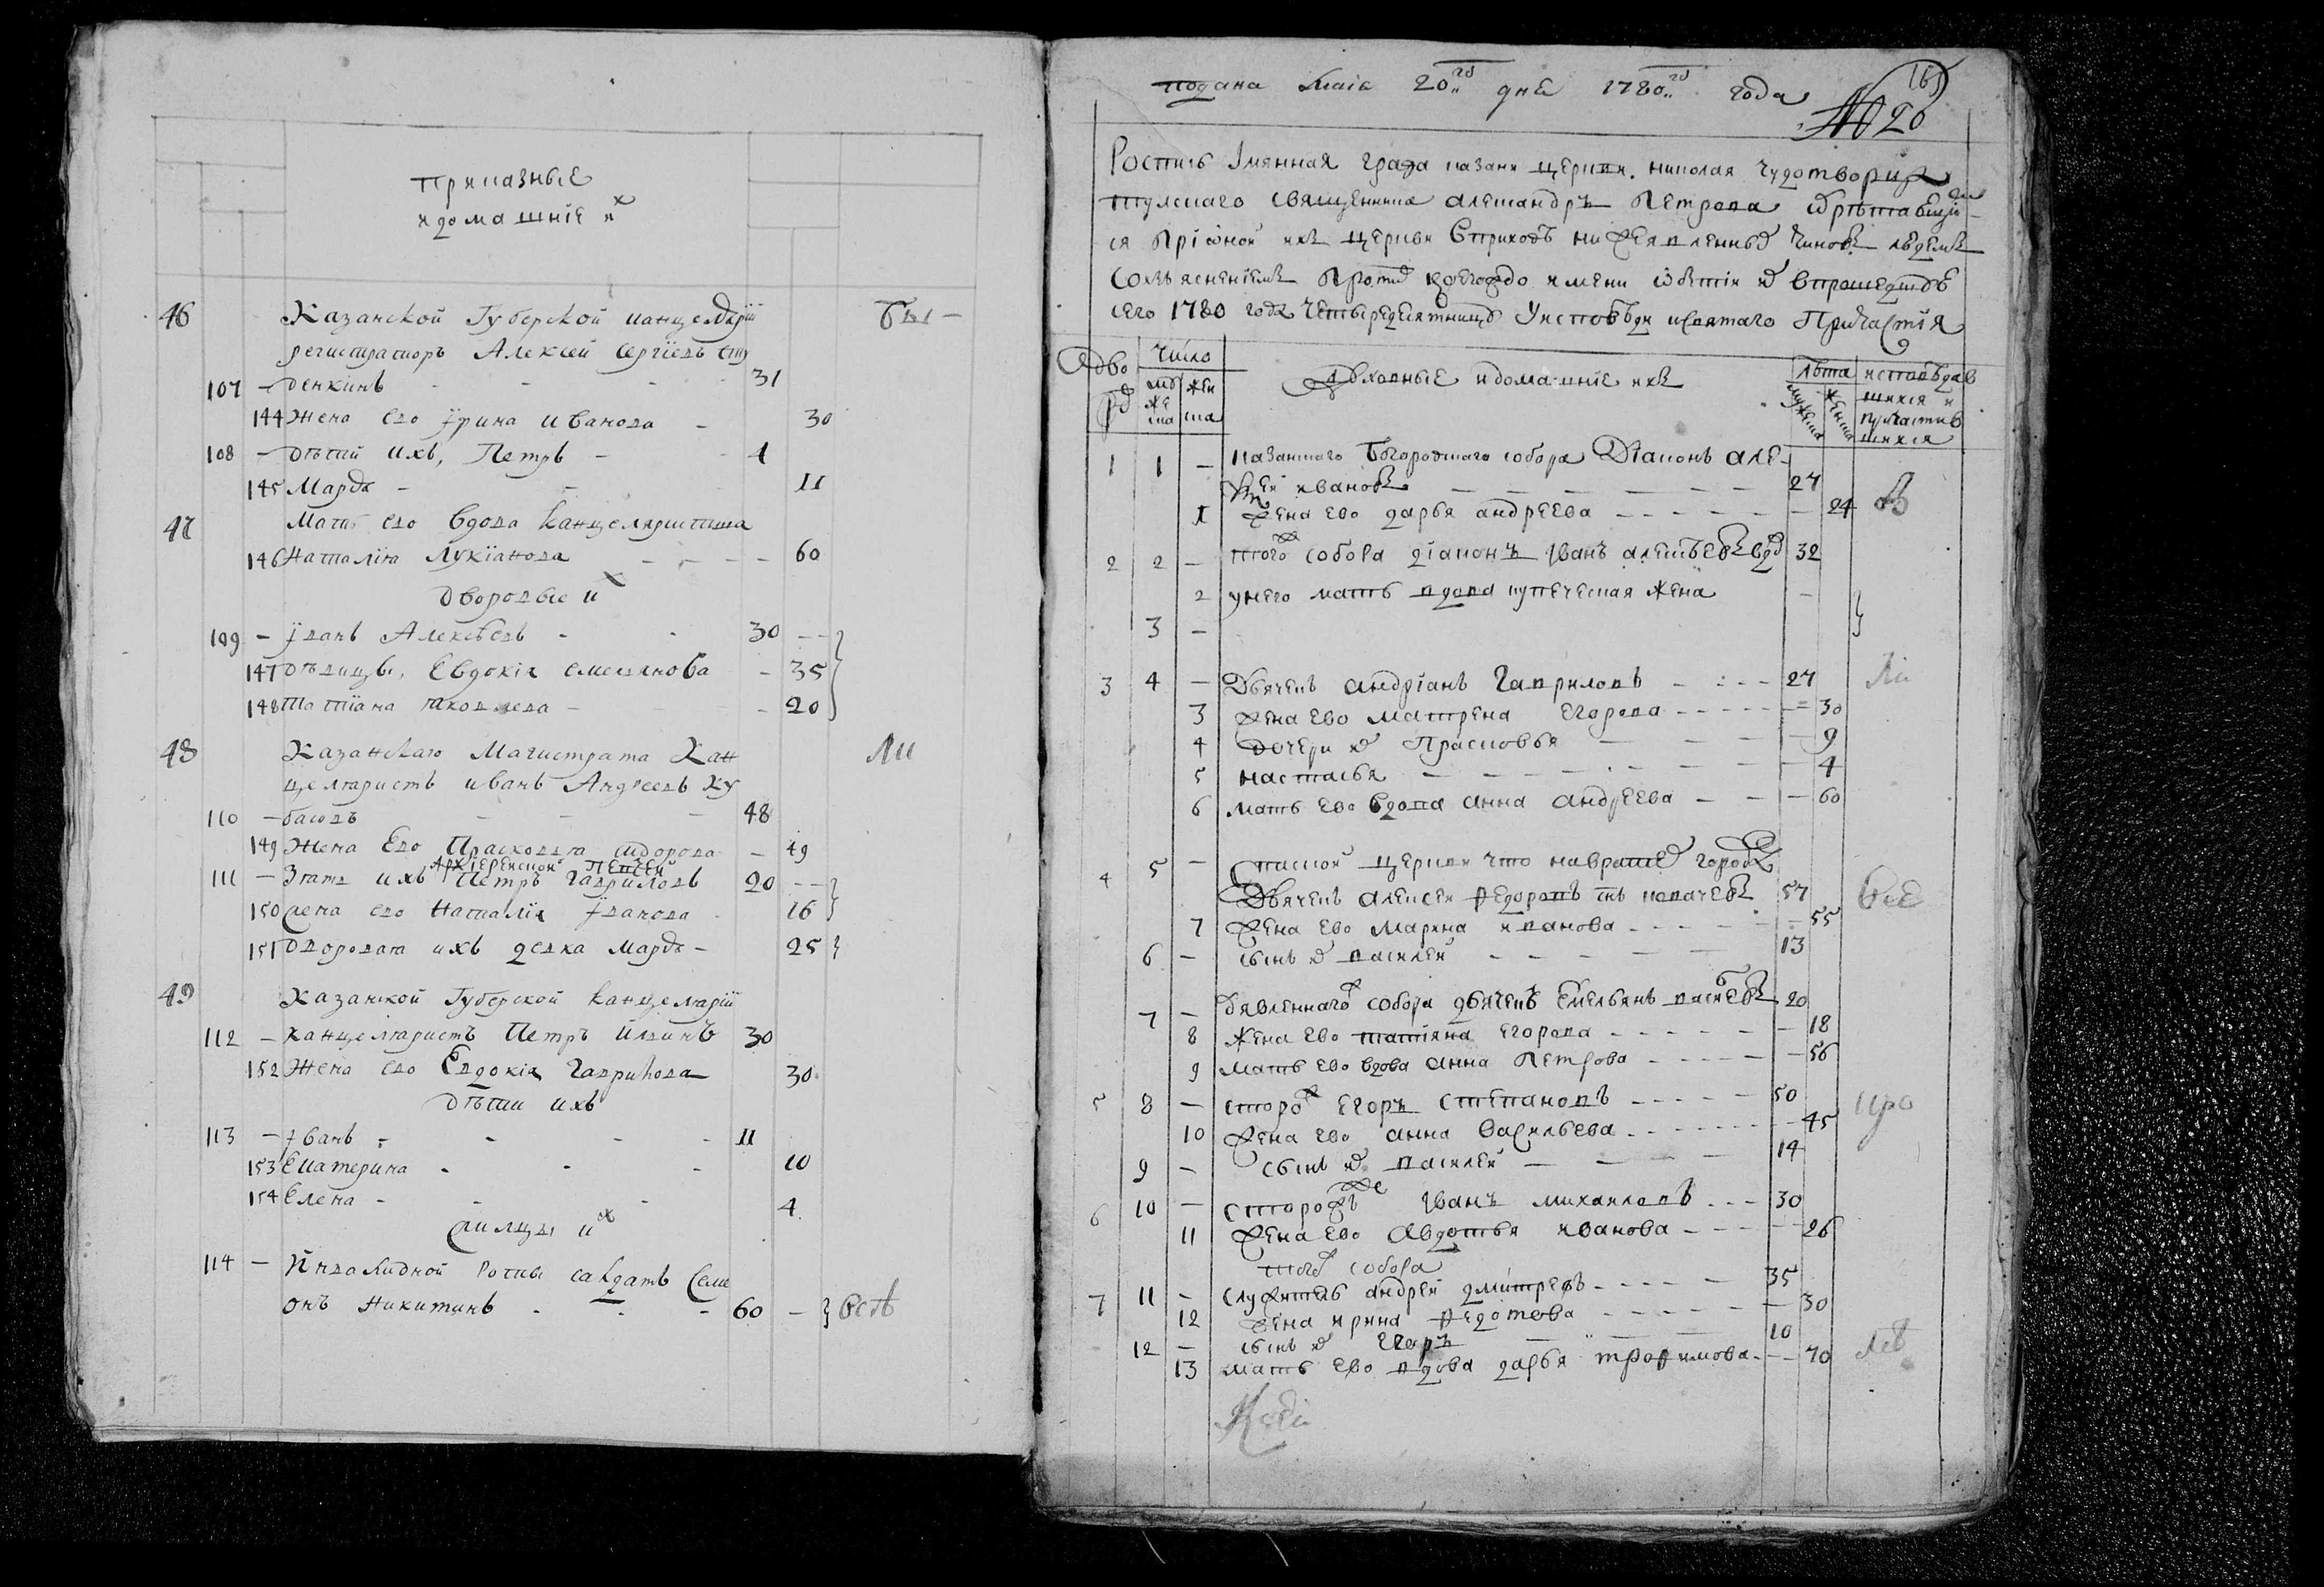 приказные
и домашніе их
46 Казанской Губерской канцеляріи Бы –
регистраторъ Алексей Сергїевъ Сту
107 – денкинъ - - - 31
144 Жена ево Ірина иванова – 30
108 – дѣтии ихъ, Петръ – - 1
145 Марѳа – - 11
47 Мать ево вдова канцеляристша
146 Наталіа Лукїанова – – – – 60
Дворовые их
109 – Іванъ Алексѣевъ - - 30 – –
147 Дѣвицы, Евдокіа емелянова – 35
148 Татїана яковлева – – 20
48 Казанскаго Магистрата Кан ли
целяристъ иванъ Андреевъ ку
110 – басовъ - – – 48
149 Жена Ево Прасковья сидорова – 49
Архїерейской певчей
111 – Зять ихъ Петръ Гавриловъ 20 – –
150 жена ево Наталїа Іванова - 16
151 Дворовая ихъ девка марѳа – 25
49 Казанской Губерской канцеляріи
112 – канцеляристъ Петръ Илїинъ 30
152 Жена ево Евдокіа Гаврилова 30
Дѣтии ихъ
113 – Іванъ - - - - 11
153 Екатерина - - - 10
154 Елена – - - 4
жилцы их
114 – Инвалидной роты салдатъ Семи
онъ Никитинъ - - – 60 – ость
подана маія 20го дня 1780го года
165
№ 20
Роспись Імянная града казани церкви николая чудотворца
тулскаго священника александръ Петрова обрѣтающи
ся при оной ихъ церкви в приходѣ нижеявленных чиновъ людемъ
со изъясненіемъ против коегождо имени о бытіи их в прошедшую
сего 1780 года четыредесятницу у исповѣди и святаго Причастія
Дворов Число Духовные и домашніе ихъ Лѣта исповѣдав
муже женска мужеска женска шихся и
ска причастив
шихся
1 1 – казанскаго Богородскаго собора Діаконъ алек
сей ивановъ – – – – – – 27
1 жена ево дарья андреева – – – – – 24
2 2 – того ж собора діаконъ Іванъ алексѣевъ вдов 32
2 у него мать вдова купеческая жена –
3 –
3 4 – Дьячекъ андріанъ Гавриловъ – - – – 27 ли
3 жена ево матрена егорова – – – – – 30
4 дочери их Прасковья – – – – 9
5 настасья – – – – – – – – 4
6 мать ево вдова анна андреева – – – 60
4 5 – спаской церкви что на вратех города
Дьячекъ алексей ѳедоровъ 57
7 жена ево марина иванова – – – – 55
6 – сынъ их василей – – – – – 13
7 – объявленнаго собора дьячекъ емельянъ васильевъ 20
8 жена ево татїяна егорова – – – – – – 18
9 мать ево вдова анна Петрова – – – – – 56
5 8 – сторож егоръ степановъ – – – – – 50
10 жена ево анна васильева – – – – – – 45
9 – сынъ их василей – – – – 14
6 10 – сторожъ же Іванъ михаиловъ – – – 30
11 жена ево авдотья иванова – – – – – 26
того ж собора
7 11 – служитель андрей дмитревъ – – – – – 35
12 жена ирина ѳедотова – – – – – – 30
12 – сынъ их егоръ – – – 10
13 мать ево вдова дарья троѳимова – – – 70